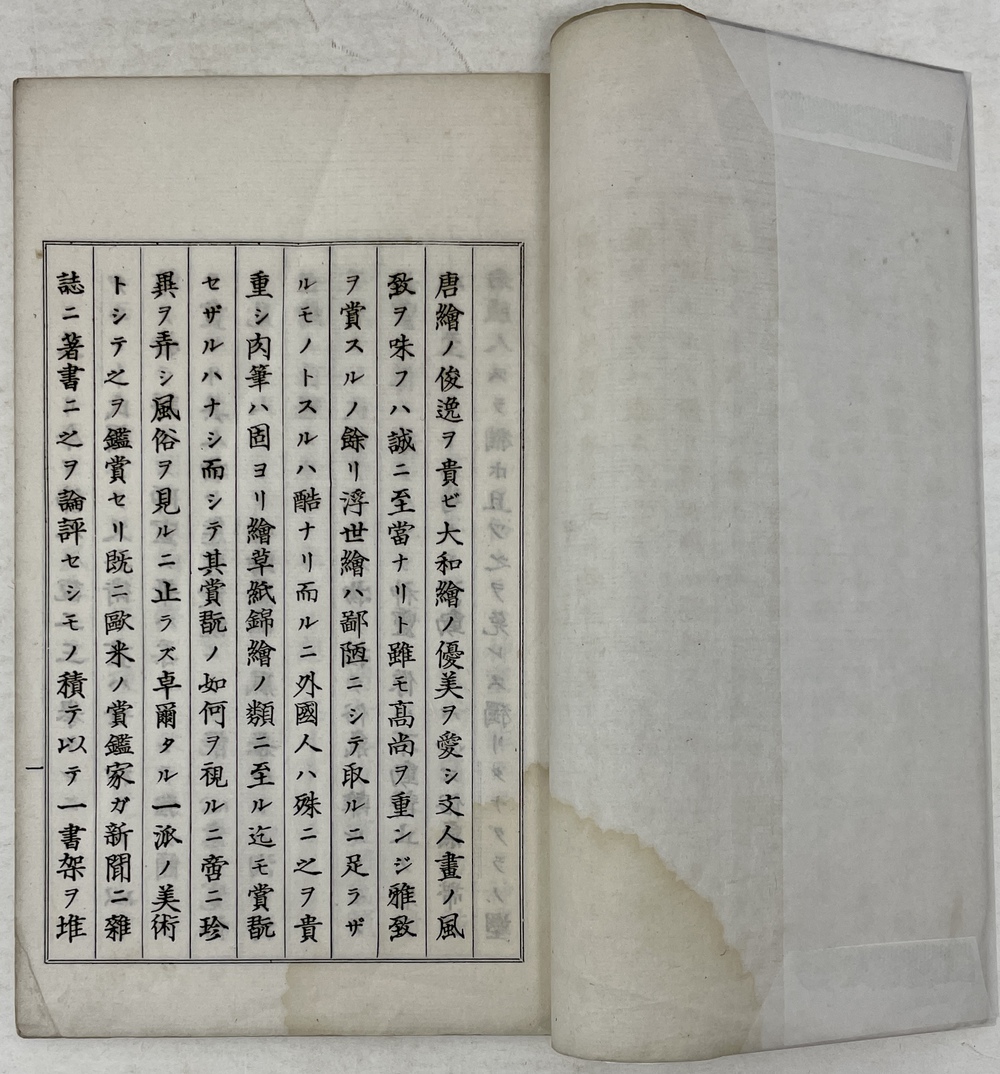 唐繪ノ俊逸ヲ貴ビ大和繪ノ優美ヲ愛シ文人畫ノ風
致ヲ味フハ誠ニ至當ナリト雖モ高尚ヲ重ンジ雅致
ヲ賞スルノ餘リ浮世繪ハ鄙陋ニシテ取ルニ足ラザ
ルモノトスルハ酷ナリ而ルニ外國人ハ殊ニ之ヲ貴
重シ肉筆ハ固ヨリ繪草紙錦繪ノ類ニ至ル迄モ賞翫
セザルハナシ而シテ其賞翫ノ如何ヲ視ルニ啻ニ珍
異ヲ弄シ風俗ヲ見ルニ止ラズ卓爾タル一派ノ美術
トシテ之ヲ鑑賞セリ既ニ歐米ノ賞鑑家ガ新聞ニ雜
誌ニ著書ニ之ヲ論評セシモノ積テ以テ一書架ヲ堆
一